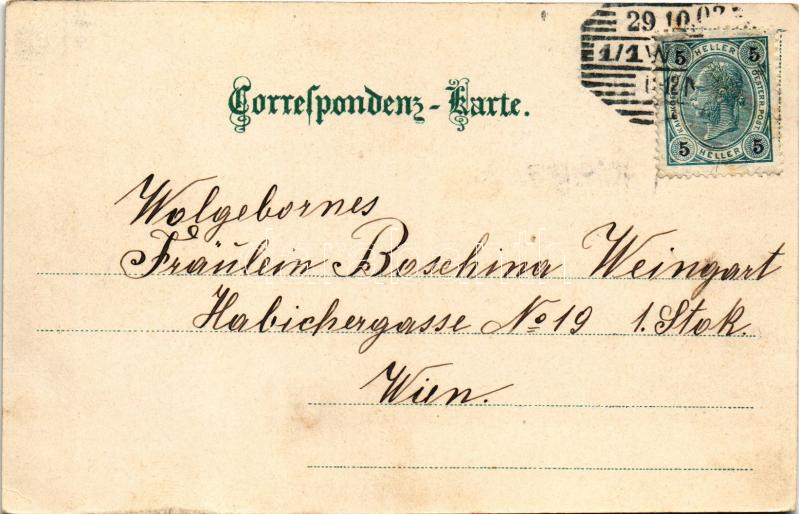 29 10 02
1/1 W
5 5
HELLER
OESTERR. POST
5 5
HELLER
Correspondenz-Karte.
Wolgebornes
Fräulein Boschina Weingart
Habichergasse No 19 1. Stok.
Wien.